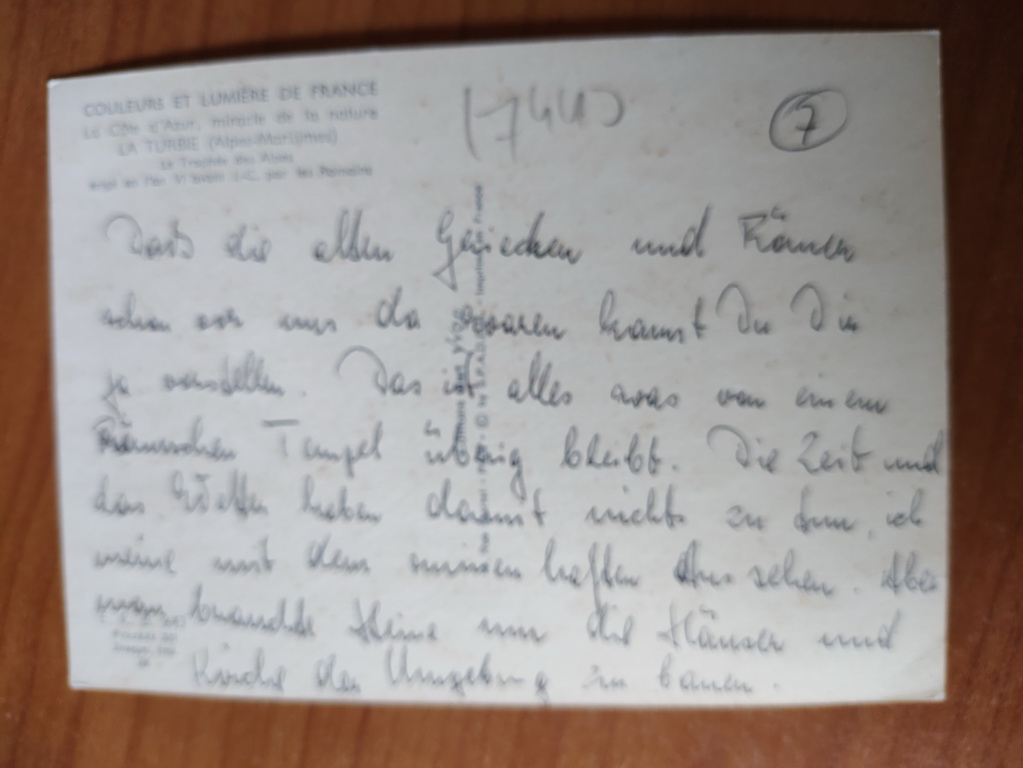 COULEURS ET LUMIÈRE DE FRANCE
La Côte d'Azur, miracle de la nature
LA TURBIE (Alpes-Maritimes)
Le Trophée des Alpes
par les Romains
7
Dass die alten Griechen und Römer
schon vor uns da waren kannst Du Dir
ja vorstellen. Das ist alles was von einem
Römischen Tempel übrig bleibt. Die Zeit und
das Wetter haben damit nichts zu tun, ich
meine mit dem ruinenhaften Aussehen. Aber
man brauchte Steine um die Häuser und
Kirche der Umgebung zu bauen.